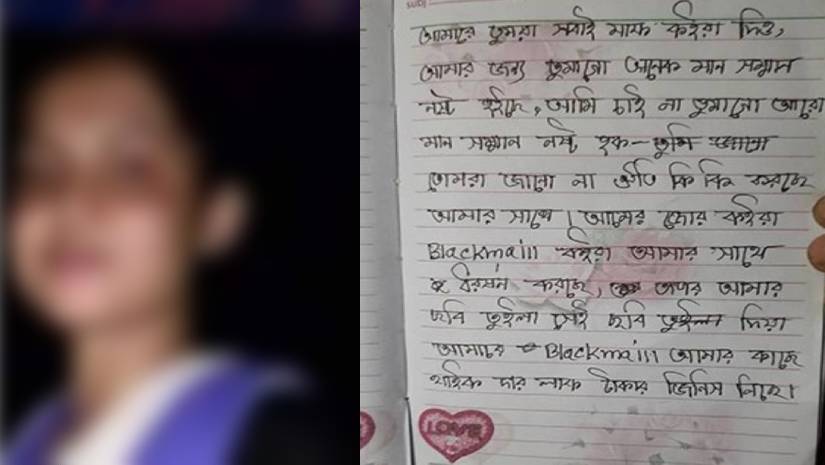 আমারে তুমরা সবাই মাফ কইরা দিও,
আমার জন্য তুমাগো অনেক মান সম্মান
নষ্ট হইছে, আমি চাই না তুমাগো আরো
মান সম্মান নষ্ট হক - তুমি
তোমরা জানো না কি কি করছে
আমার সাথে। আমারে জোর কইরা
Blackmaill কইরা আমার সাথে
করছে, তারপর আমার
ছবি তুইলা সেই ছবি তুইলা দিয়া
আমারে Blackmaill আমার কাছে
থাইক চার লাক টাকার জিনিস নিছে।
LOVE